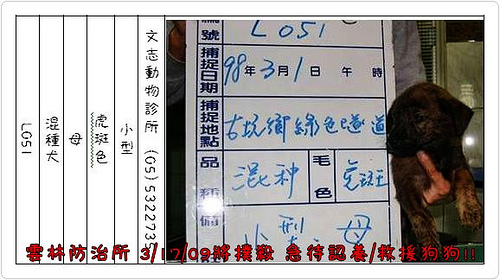 文志動物診所 (05)5322735
小型
虎斑色
母
混種犬
L051
號 L051
捕捉日期 98年3月1日 午 時
捕捉地點 古坑鄉綠色隧道
品種 混种 毛色 虎斑
備 小型. 母
雲林防治所 3/17/09將撲殺 急待認養/救援狗狗!!